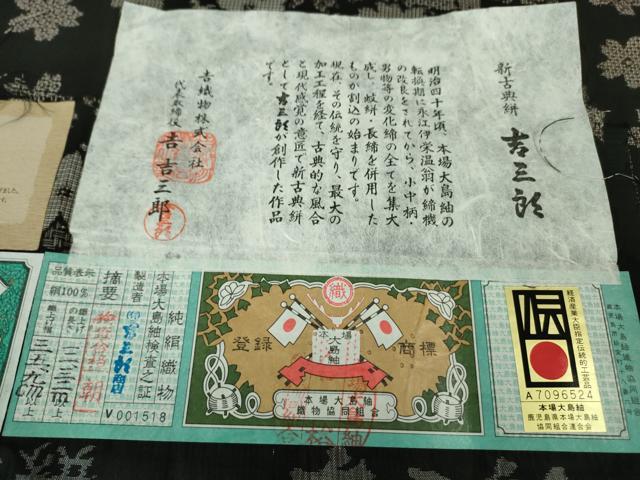 新古典絣 吉三郎
明治四十年頃、本場大島紬の
転換期に永江伊栄温翁が締機
の改良をされてから、小中柄・
男物等の変化締の全てを集大
成し、蚊絣・長絣を併用した
ものが割込の始まりです。
現在、その伝統を守り、最大の
加工工程を経て、古典的な風合
と現代感覚の意匠で新古典絣
として吉三郎が創作した作品
です。
吉織物株式会社
代表取締役 吉 吉三郎
純絹織物
本場大島紬検査之証
製造者
摘要
品質表示
絹100%
V001518
織
登録 商標
本場
大島紬
本場大島紬
織物協同組合
経済産業大臣指定伝統的工芸品
A7096524
本場大島紬
鹿児島県本場大島紬
協同組合連合会